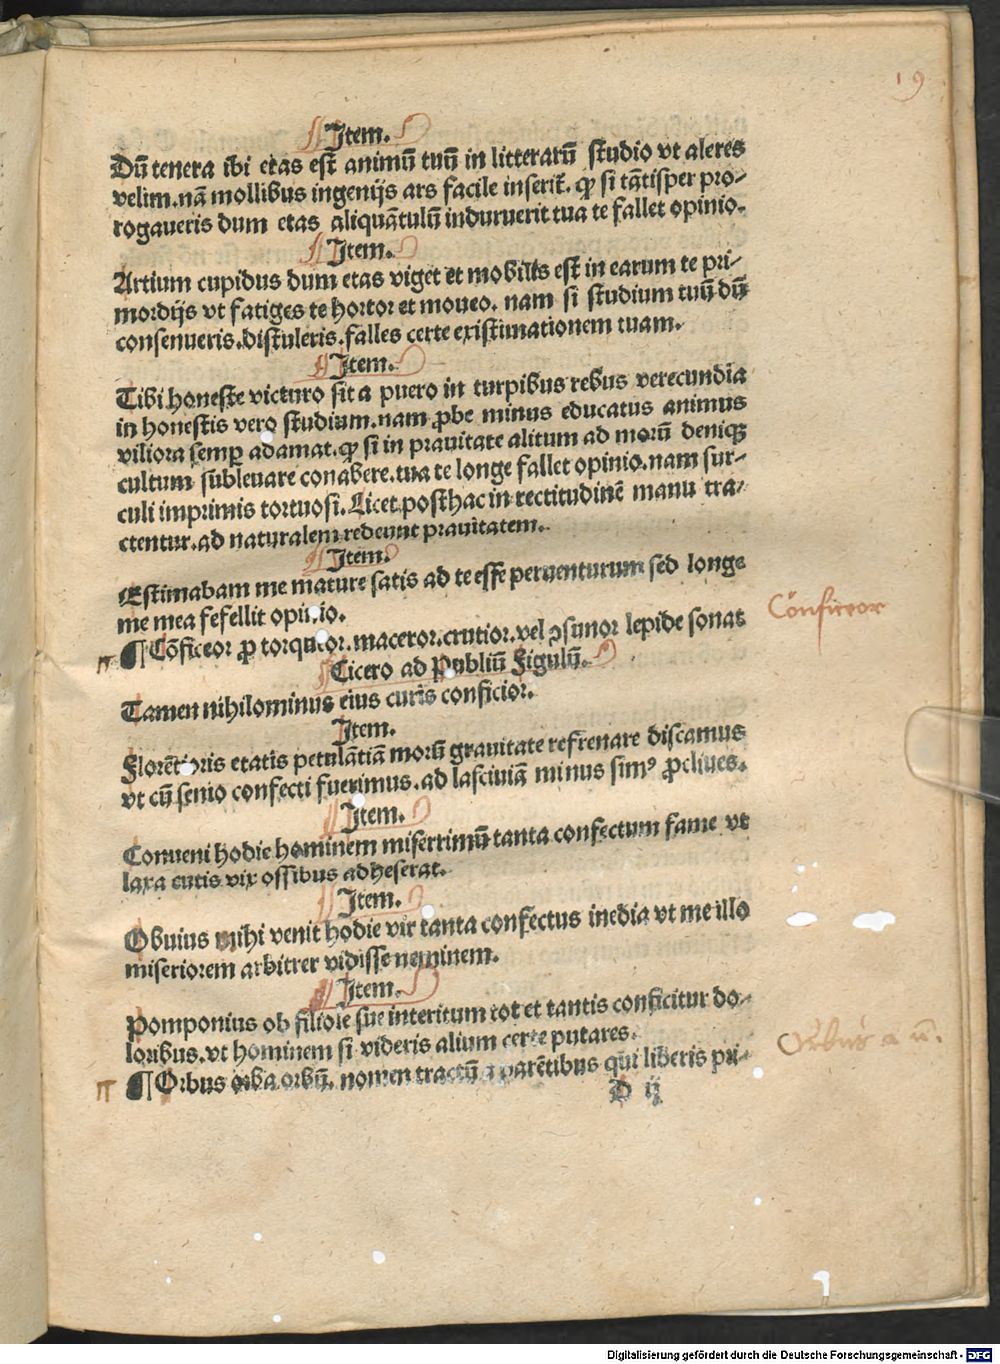 19
Jtem.
Dū tenera tibi etas est animū tuū in litterarū studio vt aleres
velim. nā mollibus ingenijs ars facile inserit̄. qꝙ si tātisper pro-
rogaueris dum etas aliquātulū induruerit tua te fallet opinio.
Jtem.
Artium cupidus dum etas viget et mobilis est in earum te pri-
mordijs vt fatiges te hortor et moueo. nam si studium tuū dū
consenueris. distuleris. falles certe existimationem tuam.
Jtem.
Tibi honeste victuro sit a puero in turpibus rebus verecundia
in honestis vero studium. nam ꝓbe minus educatus animus
viliora semꝑ adamat. ꝙ si in prauitate alitum ad morū deniqꝫ
cultum subleuare conabere. tua te longe fallet opinio. nam sur-
culi imprimis tortuosi. Licet posthac in rectitudinē manu tra-
ctentur. ad naturalem redeunt prauitatem.
Jtem.
Estimabam me mature satis ad te esse peruenturum sed longe
me mea fefellit opinio.
Conficeor
¶ Cōficeor ꝓ torqueor. maceror. crutior. vel ꝯsumor lepide sonat
Cicero ad Publiū Figulū.
Tamen nihilominus eius curis conficior.
Jtem.
Florētioris etatis petulātiā morū grauitate refrenare discamus
vt cū senio confecti fuerimus. ad lasciuiā minus simꝰ ꝓcliues.
Jtem.
Conueni hodie hominem miserrimū tanta confectum fame vt
laxa cutis vix ossibus adheserat.
Jtem.
Obuius mihi venit hodie vir tanta confectus inedia vt me illo
miseriorem arbitrer vidisse neminem.
Jtem.
Pomponius ob filiole sue interitum tot et tantis conficitur do-
loribus. vt hominem si videris alium certe putares.
Orbus a ū.
¶ Orbus orba orbū. nomen tractū a parētibus qui liberis pri-
D ij
Digitalisierung gefördert durch die Deutsche Forschungsgemeinschaft - DFG